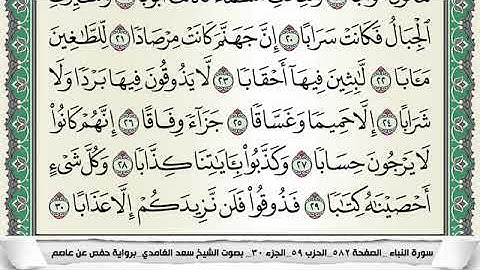 الْجِبَالُ فَكَانَتْ سَرَابًا ٢٠ إِنَّ جَهَنَّمَ كَانَتْ مِرْصَادًا ٢١ لِّلطَّاغِينَ
مَـَٔابًا ٢٢ لَّابِثِينَ فِيهَآ أَحْقَابًا ٢٣ لَّا يَذُوقُونَ فِيهَا بَرْدًا وَلَا
شَرَابًا ٢٤ إِلَّا حَمِيمًا وَغَسَّاقًا ٢٥ جَزَآءً وِفَاقًا ٢٦ إِنَّهُمْ كَانُوا۟
لَا يَرْجُونَ حِسَابًا ٢٧ وَكَذَّبُوا۟ بِـَٔايَٰتِنَا كِذَّابًا ٢٨ وَكُلَّ شَىْءٍ
أَحْصَيْنَٰهُ كِتَٰبًا ٢٩ فَذُوقُوا۟ فَلَن نَّزِيدَكُمْ إِلَّا عَذَابًا ٣٠
سورة النباء _الصفحة ٥٨٢_الحزب ٥٩_الجزء ٣٠_ بصوت الشيخ سعد الغامدي_برواية حفص عن عاصم